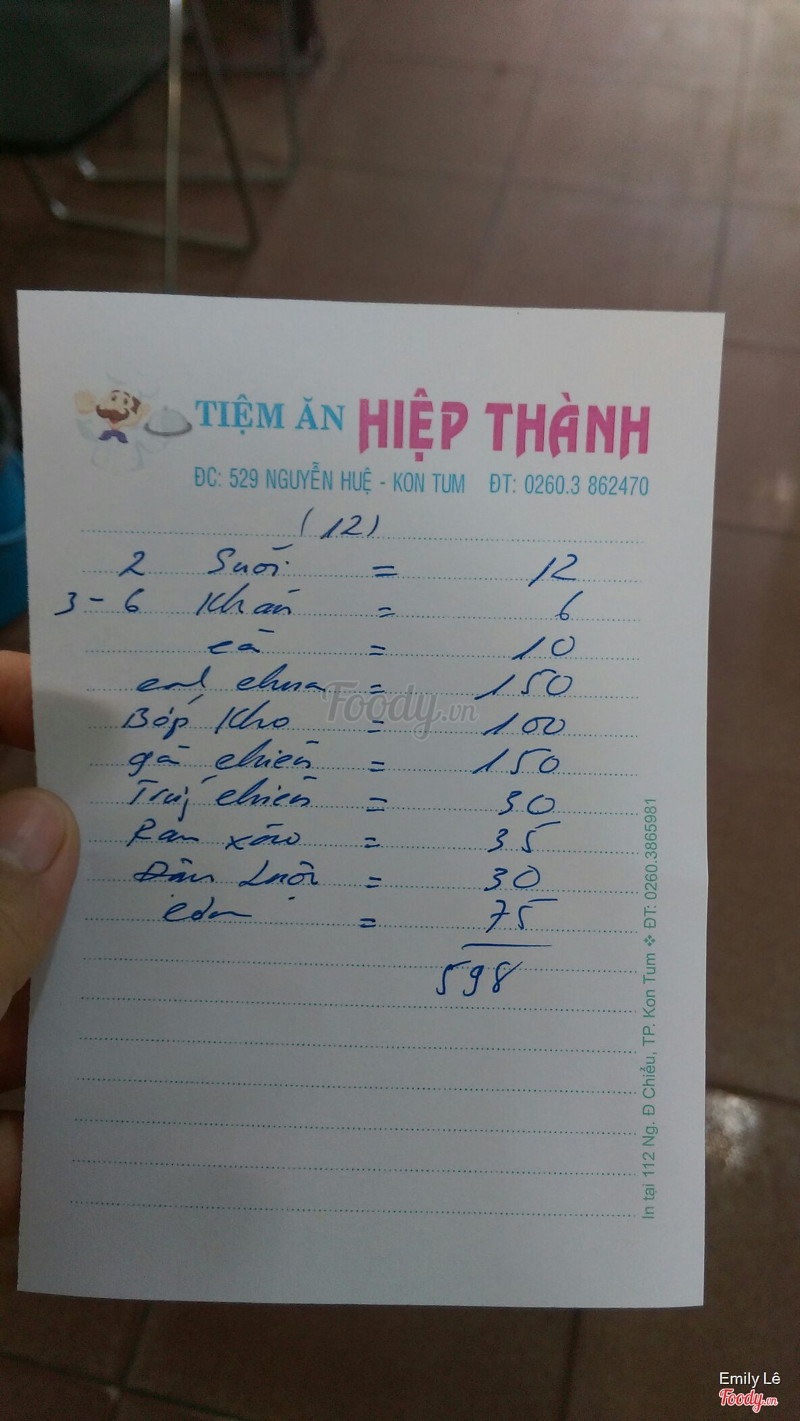 TIỆM ĂN HIỆP THÀNH
ĐC: 529 NGUYỄN HUỆ - KON TUM ĐT: 0260.3 862470
(12)
2 Suối = 12
3 - 6 Khăn = 6
cà = 10
canh chua = 150
Bóp Kho = 100
gà chiên = 150
Trứng chiên = 30
Rau xào = 35
Đậu Luộc = 30
cơm = 75
598
Foody.vn
In tại 112 Ng. Đ Chiểu, TP. Kon Tum ❖ ĐT: 0260.3865981
Emily Lê
Foody.vn